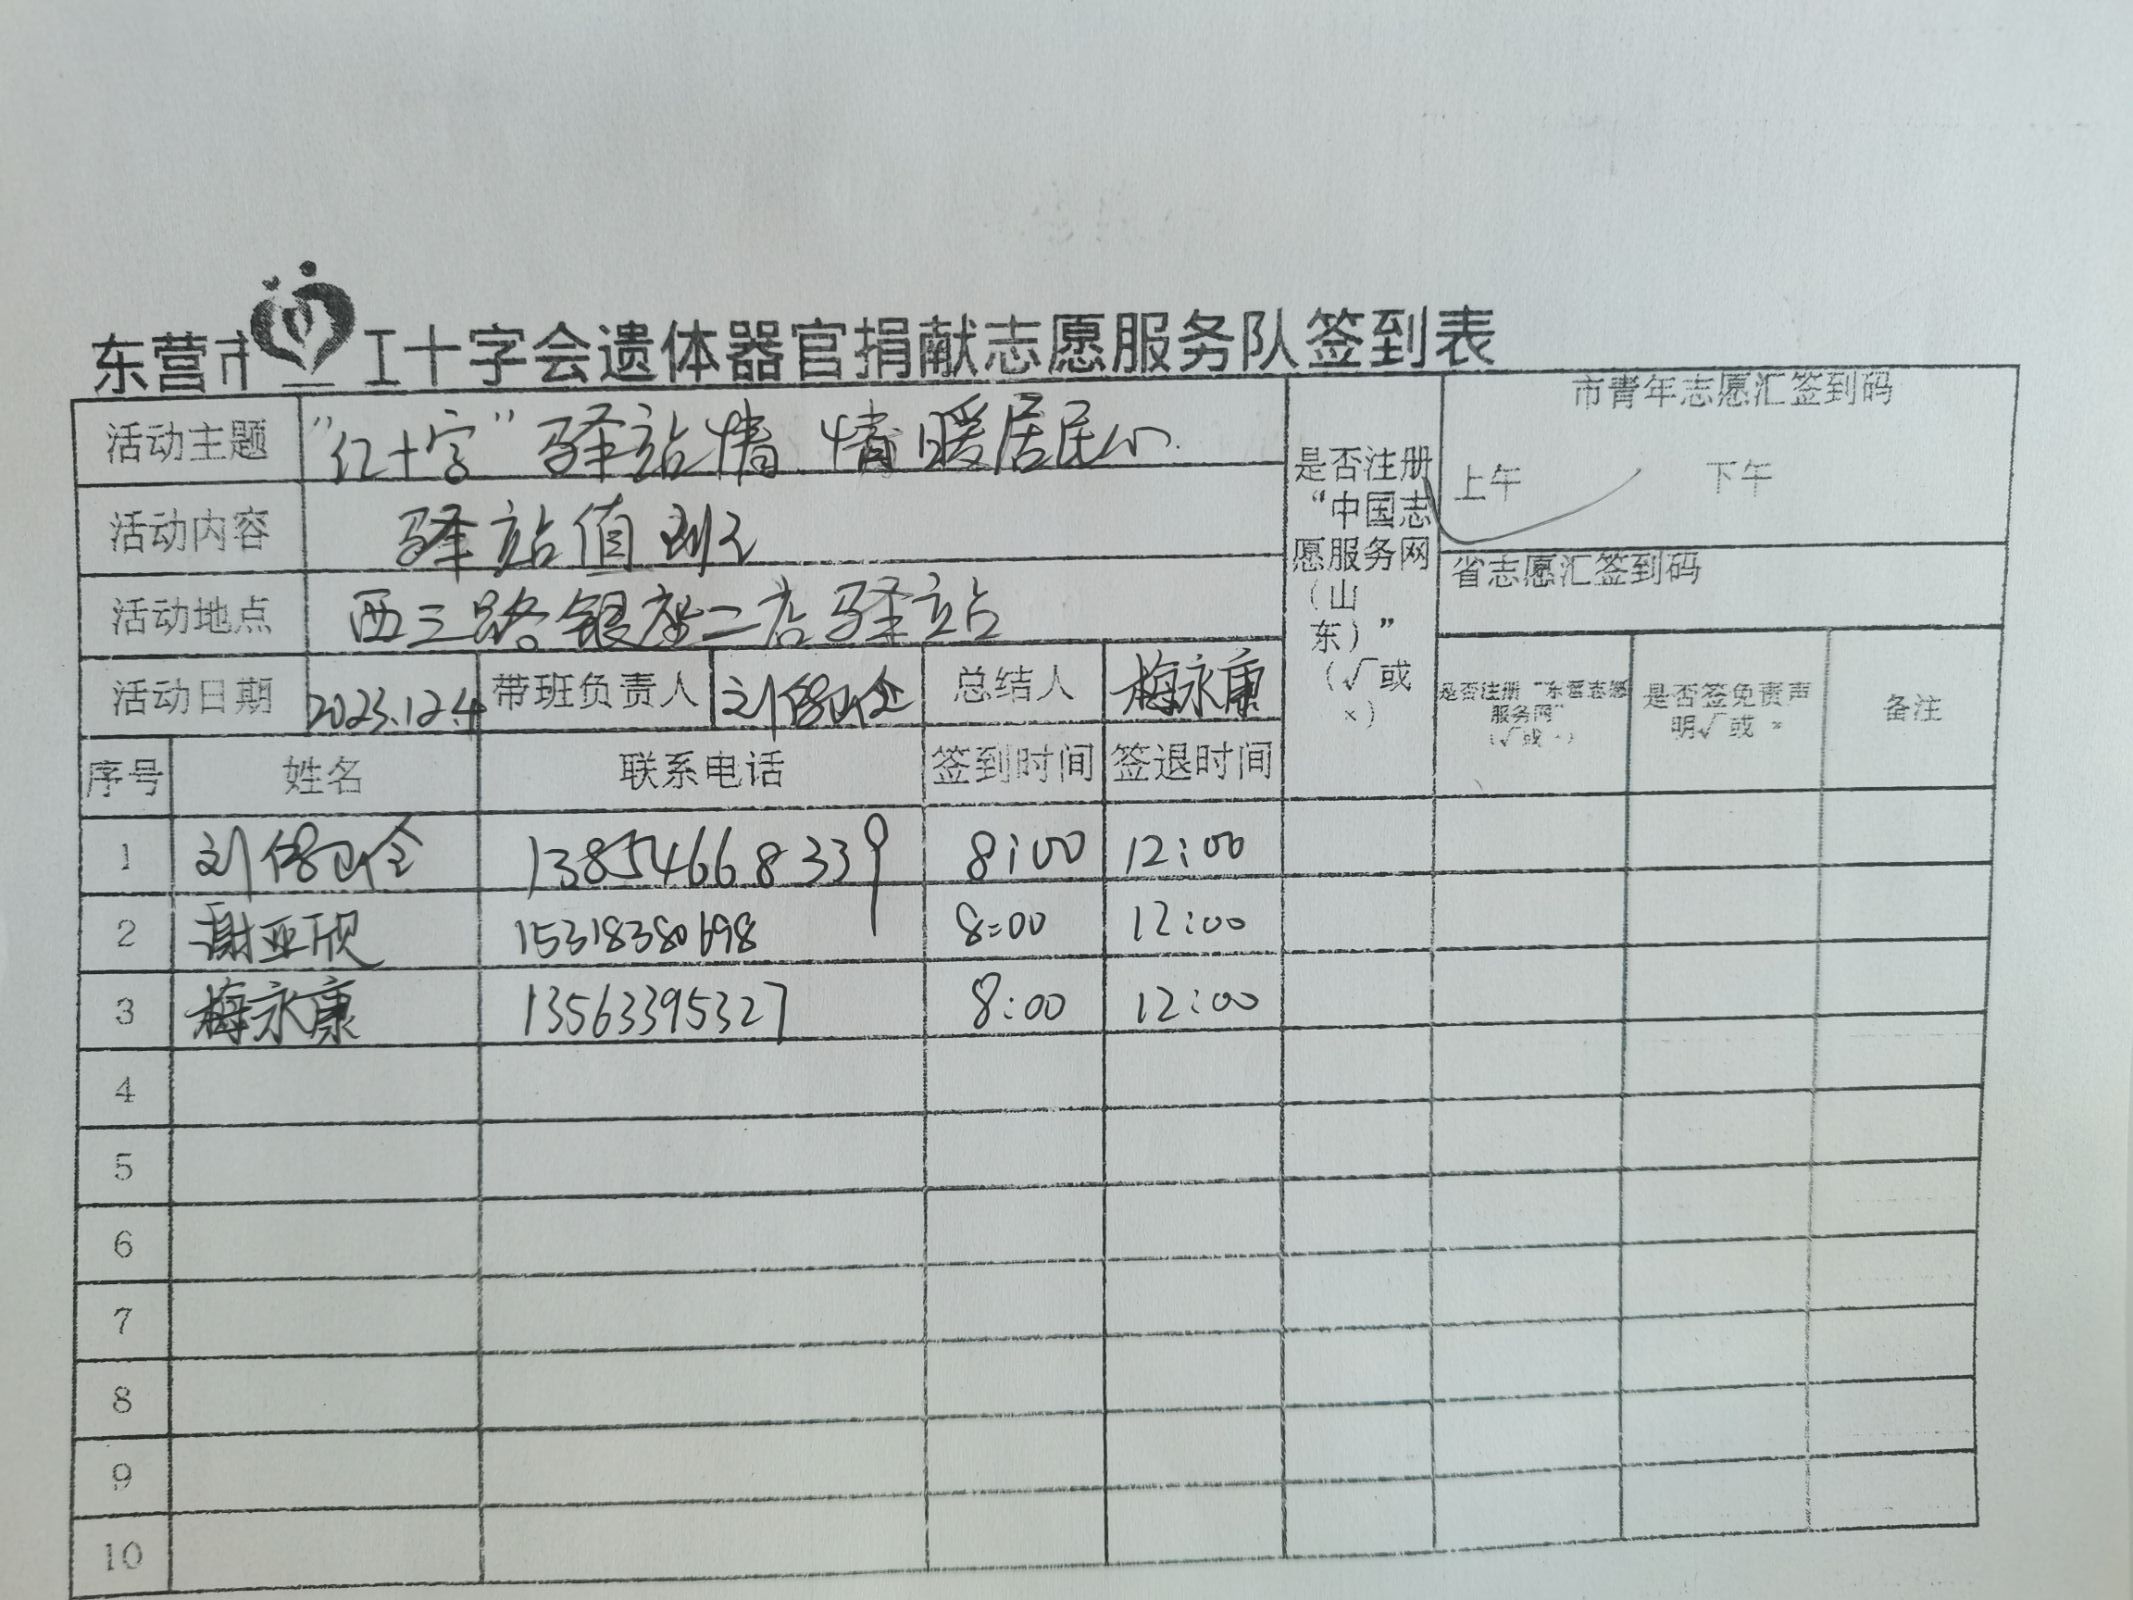 东营市红十字会遗体器官捐献志愿服务队签到表
活动主题 "红十字"驿站情 情暖居民心
活动内容 驿站值班
活动地点 西三路银座二店驿站
活动日期 2023.12.4 带班负责人 刘 总结人 梅永康
是否注册
“中国志
愿服务网
（山
东）”
（√或
×）
市青年志愿汇签到码
上午 下午
省志愿汇签到码
是否注册“东营志愿
服务网”
（√或×）
是否签免责声
明√或 ×
备注
序号 姓名 联系电话 签到时间 签退时间
1 刘 13854668339 8:00 12:00
2 谢亚欣 15318380698 8:00 12:00
3 梅永康 13563395327 8:00 12:00
4
5
6
7
8
9
10